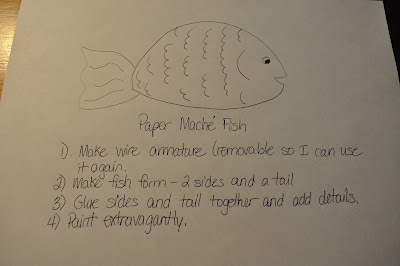 Paper Maché Fish
1). Make wire armature (removable so I can use
it again.
2) Make fish form - 2 sides and a tail
3) Glue sides and tail together and add details.
4) Paint extravagantly.